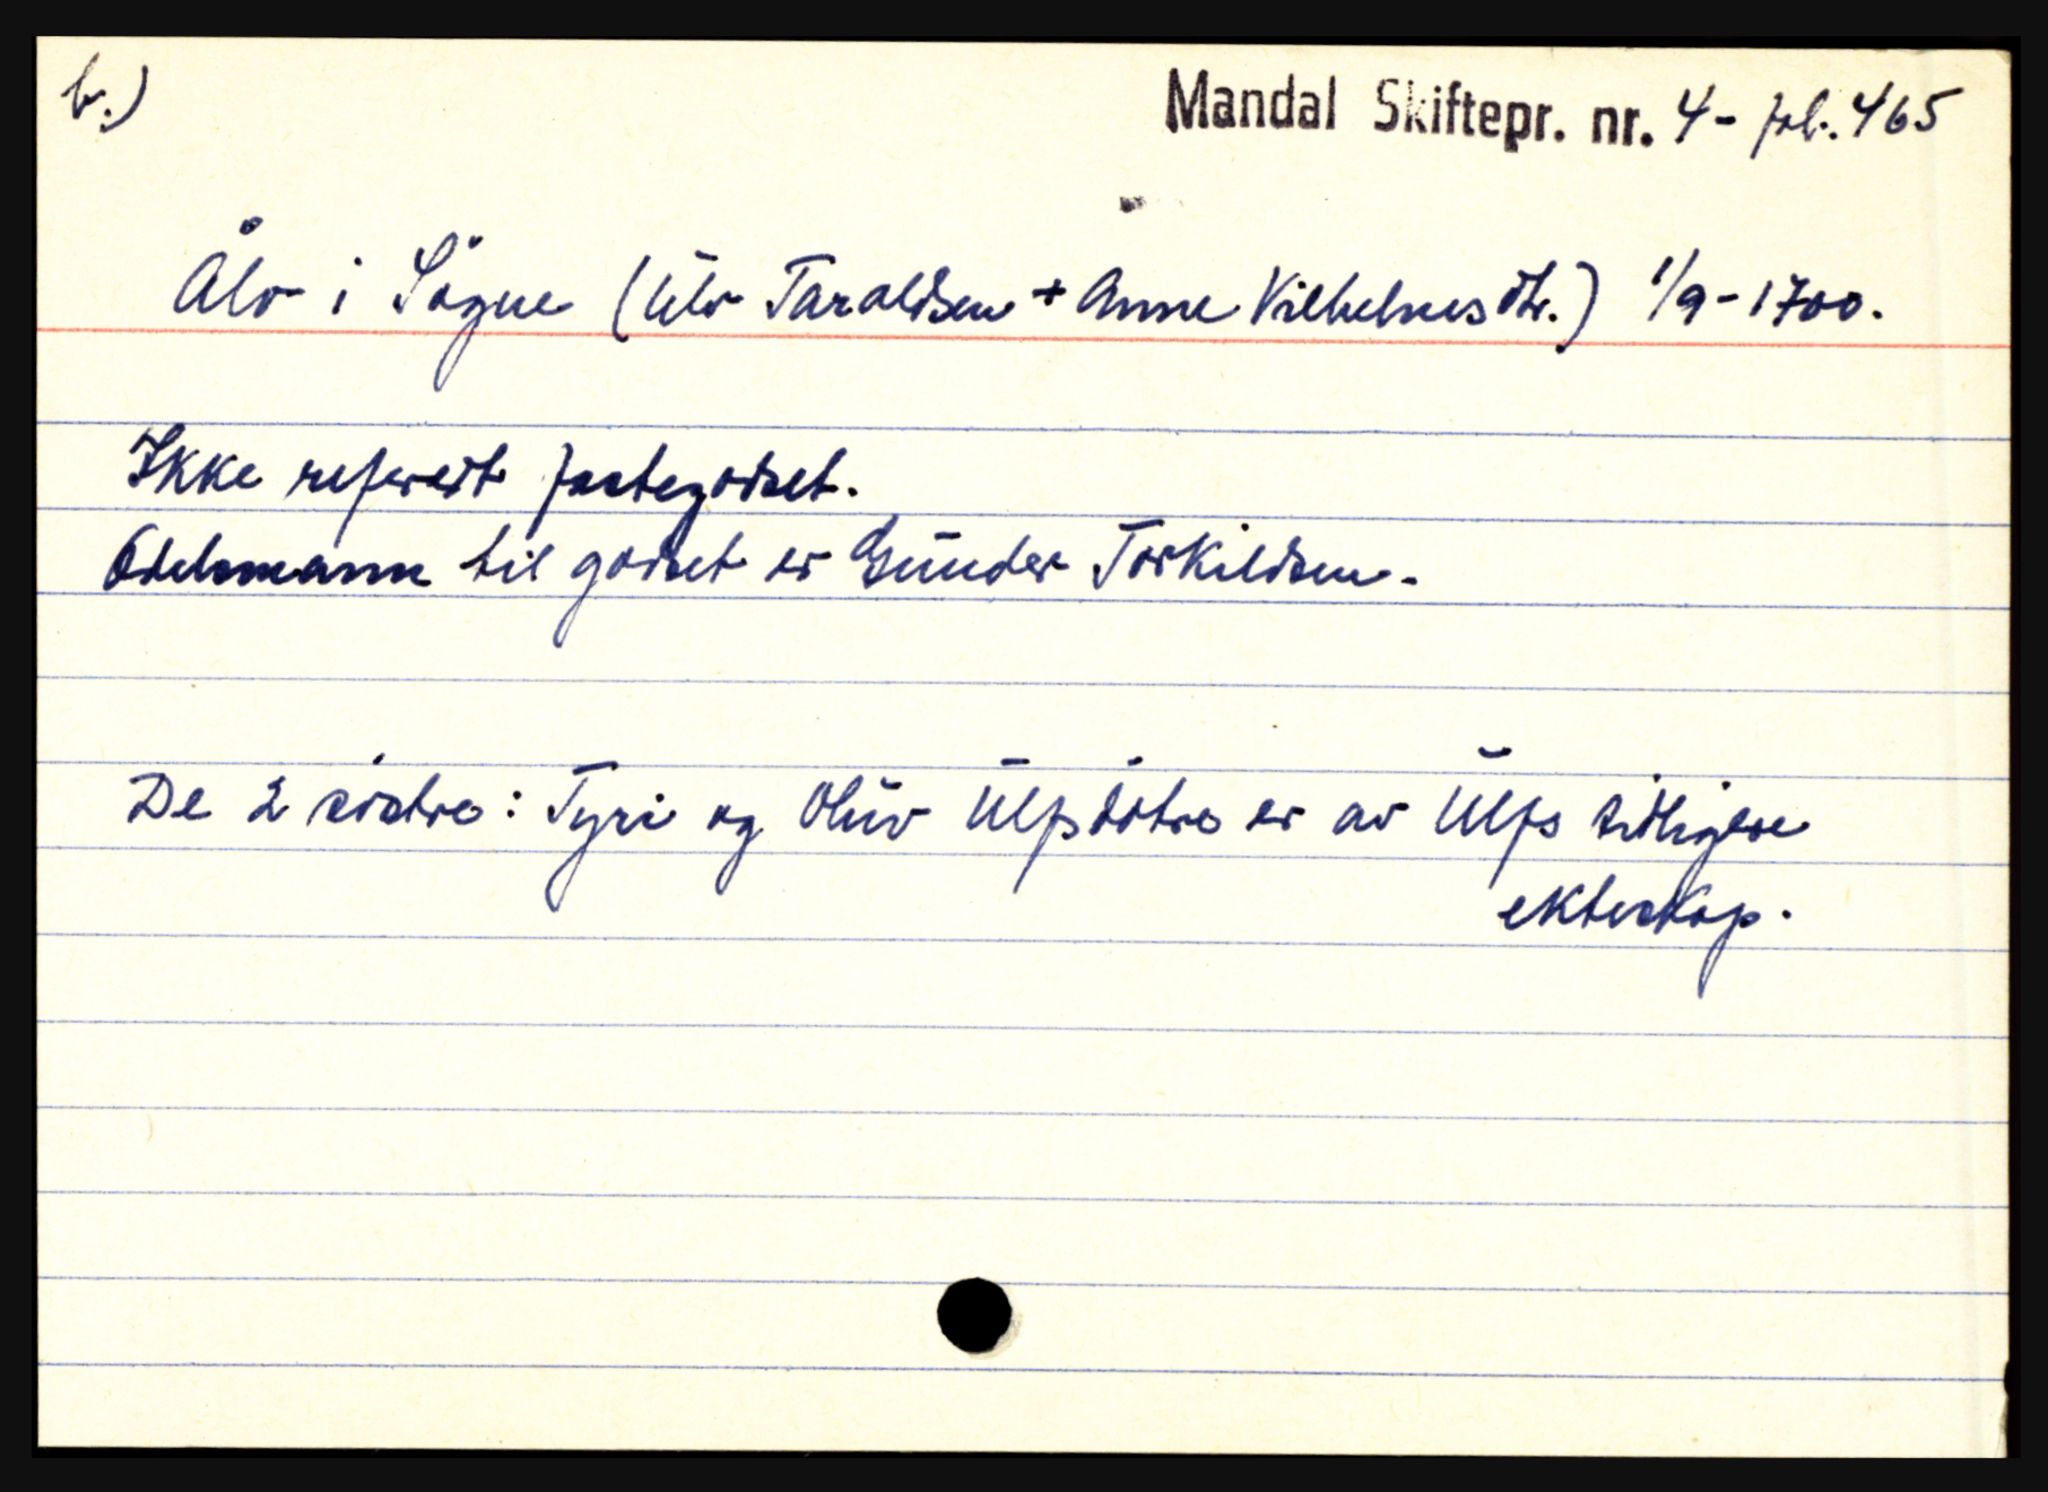 b.)
Mandal Skiftepr. nr. 4 - fol. 465
Ålo i Sögne (Ulv Taraldsen + Anne Vilhelmsdtr.) 1/9 - 1700.
Ikke referert jordegodset.
Odelsmann til godset er Gunder Torkildsen.
De 2 söstre: Tyri og Oluv Ulfsdötre er av Ulfs tidligere
ekteskap.